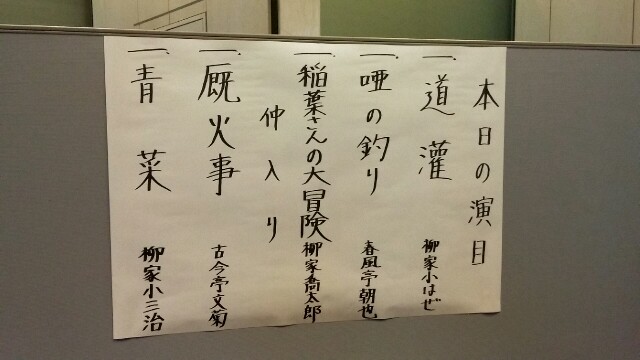 本日の演目
一、道灌 柳家小はぜ
一、唖の釣り 春風亭朝也
一、稲葉さんの大冒険 柳家喬太郎
仲入り
一、厩火事 古今亭文菊
一、青菜 柳家小三治